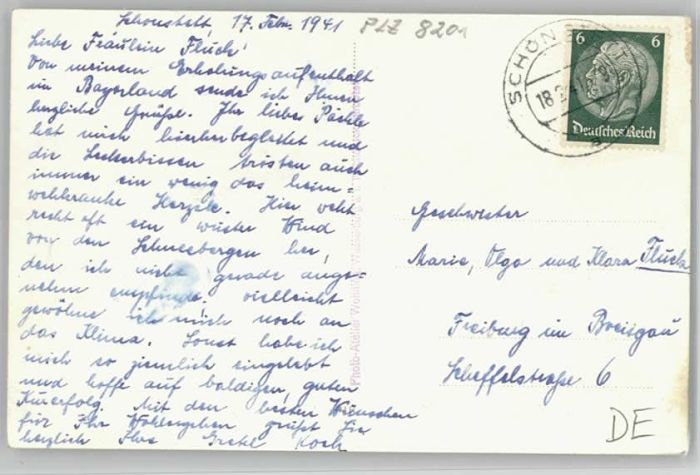 Schonstett, 17. Febr. 1941
Liebe Fräulein Fluck!
Von meinem Erholungsaufenthalt
im Bayerland sende ich Ihnen
herzliche Grüße. Ihr liebes Päckle
hat mich hierher begleitet und
die Leckerbissen trösten auch
immer ein wenig das heim-
wehkranke Herzele. Hier weht
recht oft ein wüster Wind
von den Schneebergen her,
den ich nicht gerade ange-
nehm empfinde. vielleicht
gewöhne ich mich noch an
das Klima. Sonst habe ich
mich so ziemlich eingelebt
und hoffe auf baldigen, guten
Kurerfolg. Mit den besten Wünschen
für Ihr Wohlergehen grüßt Sie
herzlich Ihre Gretel Koch
PLZ 8201
SCHÖNSTETT
18.2.
6 6
Deutsches Reich
Photo-Atelier
Geschwister
Marie, Olga und Klara Fluck
Freiburg im Breisgau
Scheffelstraße 6
DE